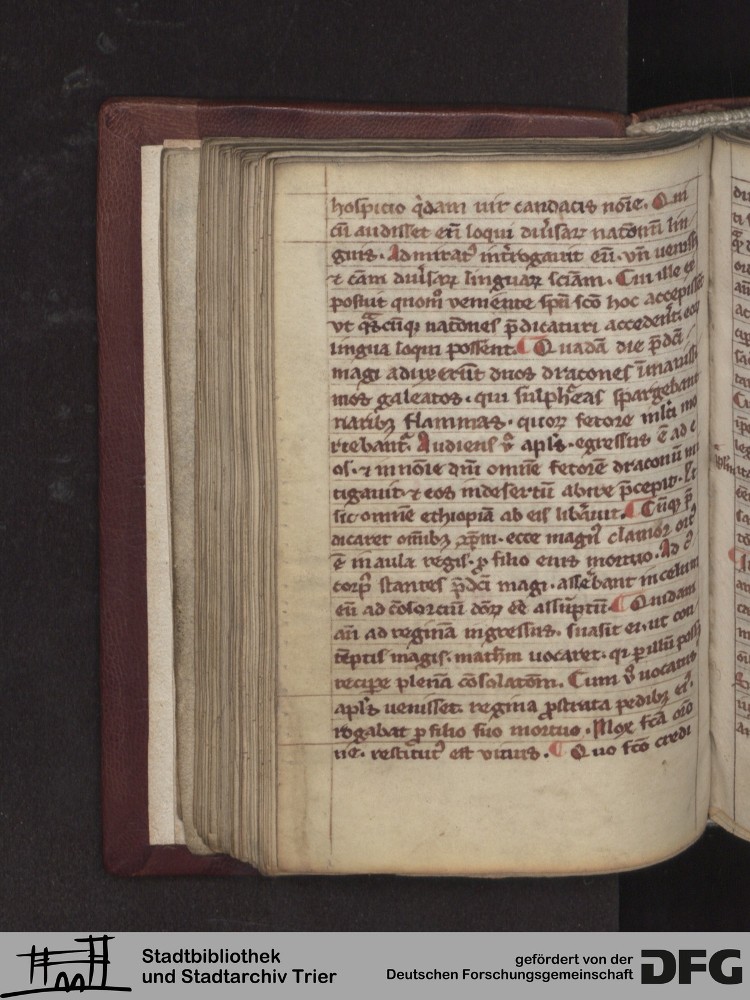 hospicio q̇dam uir candacis noı̄e. Qui
cū audisset eū loqui diu̓saꝝ natōnū lin
guis. Admirat᷒ int̓rogauit eū. vn̄ uenisset
⁊ cām diu̓saꝝ linguaꝝ sciām. Cui ille ex
posuit quom̊ veniente spū sc̄o hoc accepisset
vt q̄scūq; natōnes p̄dicaturi accederēt. eoꝝ
lingua loqui possent. ¶ Quadā die p̄dc̄i
magi aduxerūt duos dracones īmanissi
mos galeatos. qui sulph̓eas spargebant
naribꝫ flammas. quoꝝ fetore ml̓ti mo
riebant᷑. Audiens v̊ apl̓s. egressus ē ad e
os. ⁊ in noı̄e dn̄i omnē fetorē draconū mi
tigauit. ⁊ eos in desertū abire p̄cepit. Et
sic omnē ethiopiā ab eis lib̓auit. ¶ Cūq; p̄
dicaret om̄ibꝫ xp̄m. ecce magn᷒ clamor ort᷒
ē in aula regis. ꝓ filio eius mortuo. Ad c᷒
corp᷒ stantes p̄dc̄i magi. asse̓bant in celum
eū ad cōsorciū deoꝝ eē assūptū. ¶ Quidam
aū ad reginā ingressus. suasit ei. ut con
tēptis magis. mathm̄ uocaret. qr̄ ꝑ illū posset
recipe plenā cōsolatōm. Cum v̊ uocatus
apl̓s uenisset. regina ꝓstrata pedibꝫ ei᷒.
rogabat ꝓ filio suo mortuo. Mox fc̄a orō
ne. restitut᷒ est viuus. ¶ Quo fc̄o credi
Stadtbibliothek
und Stadtarchiv Trier
gefördert von der
Deutschen Forschungsgemeinschaft
DFG